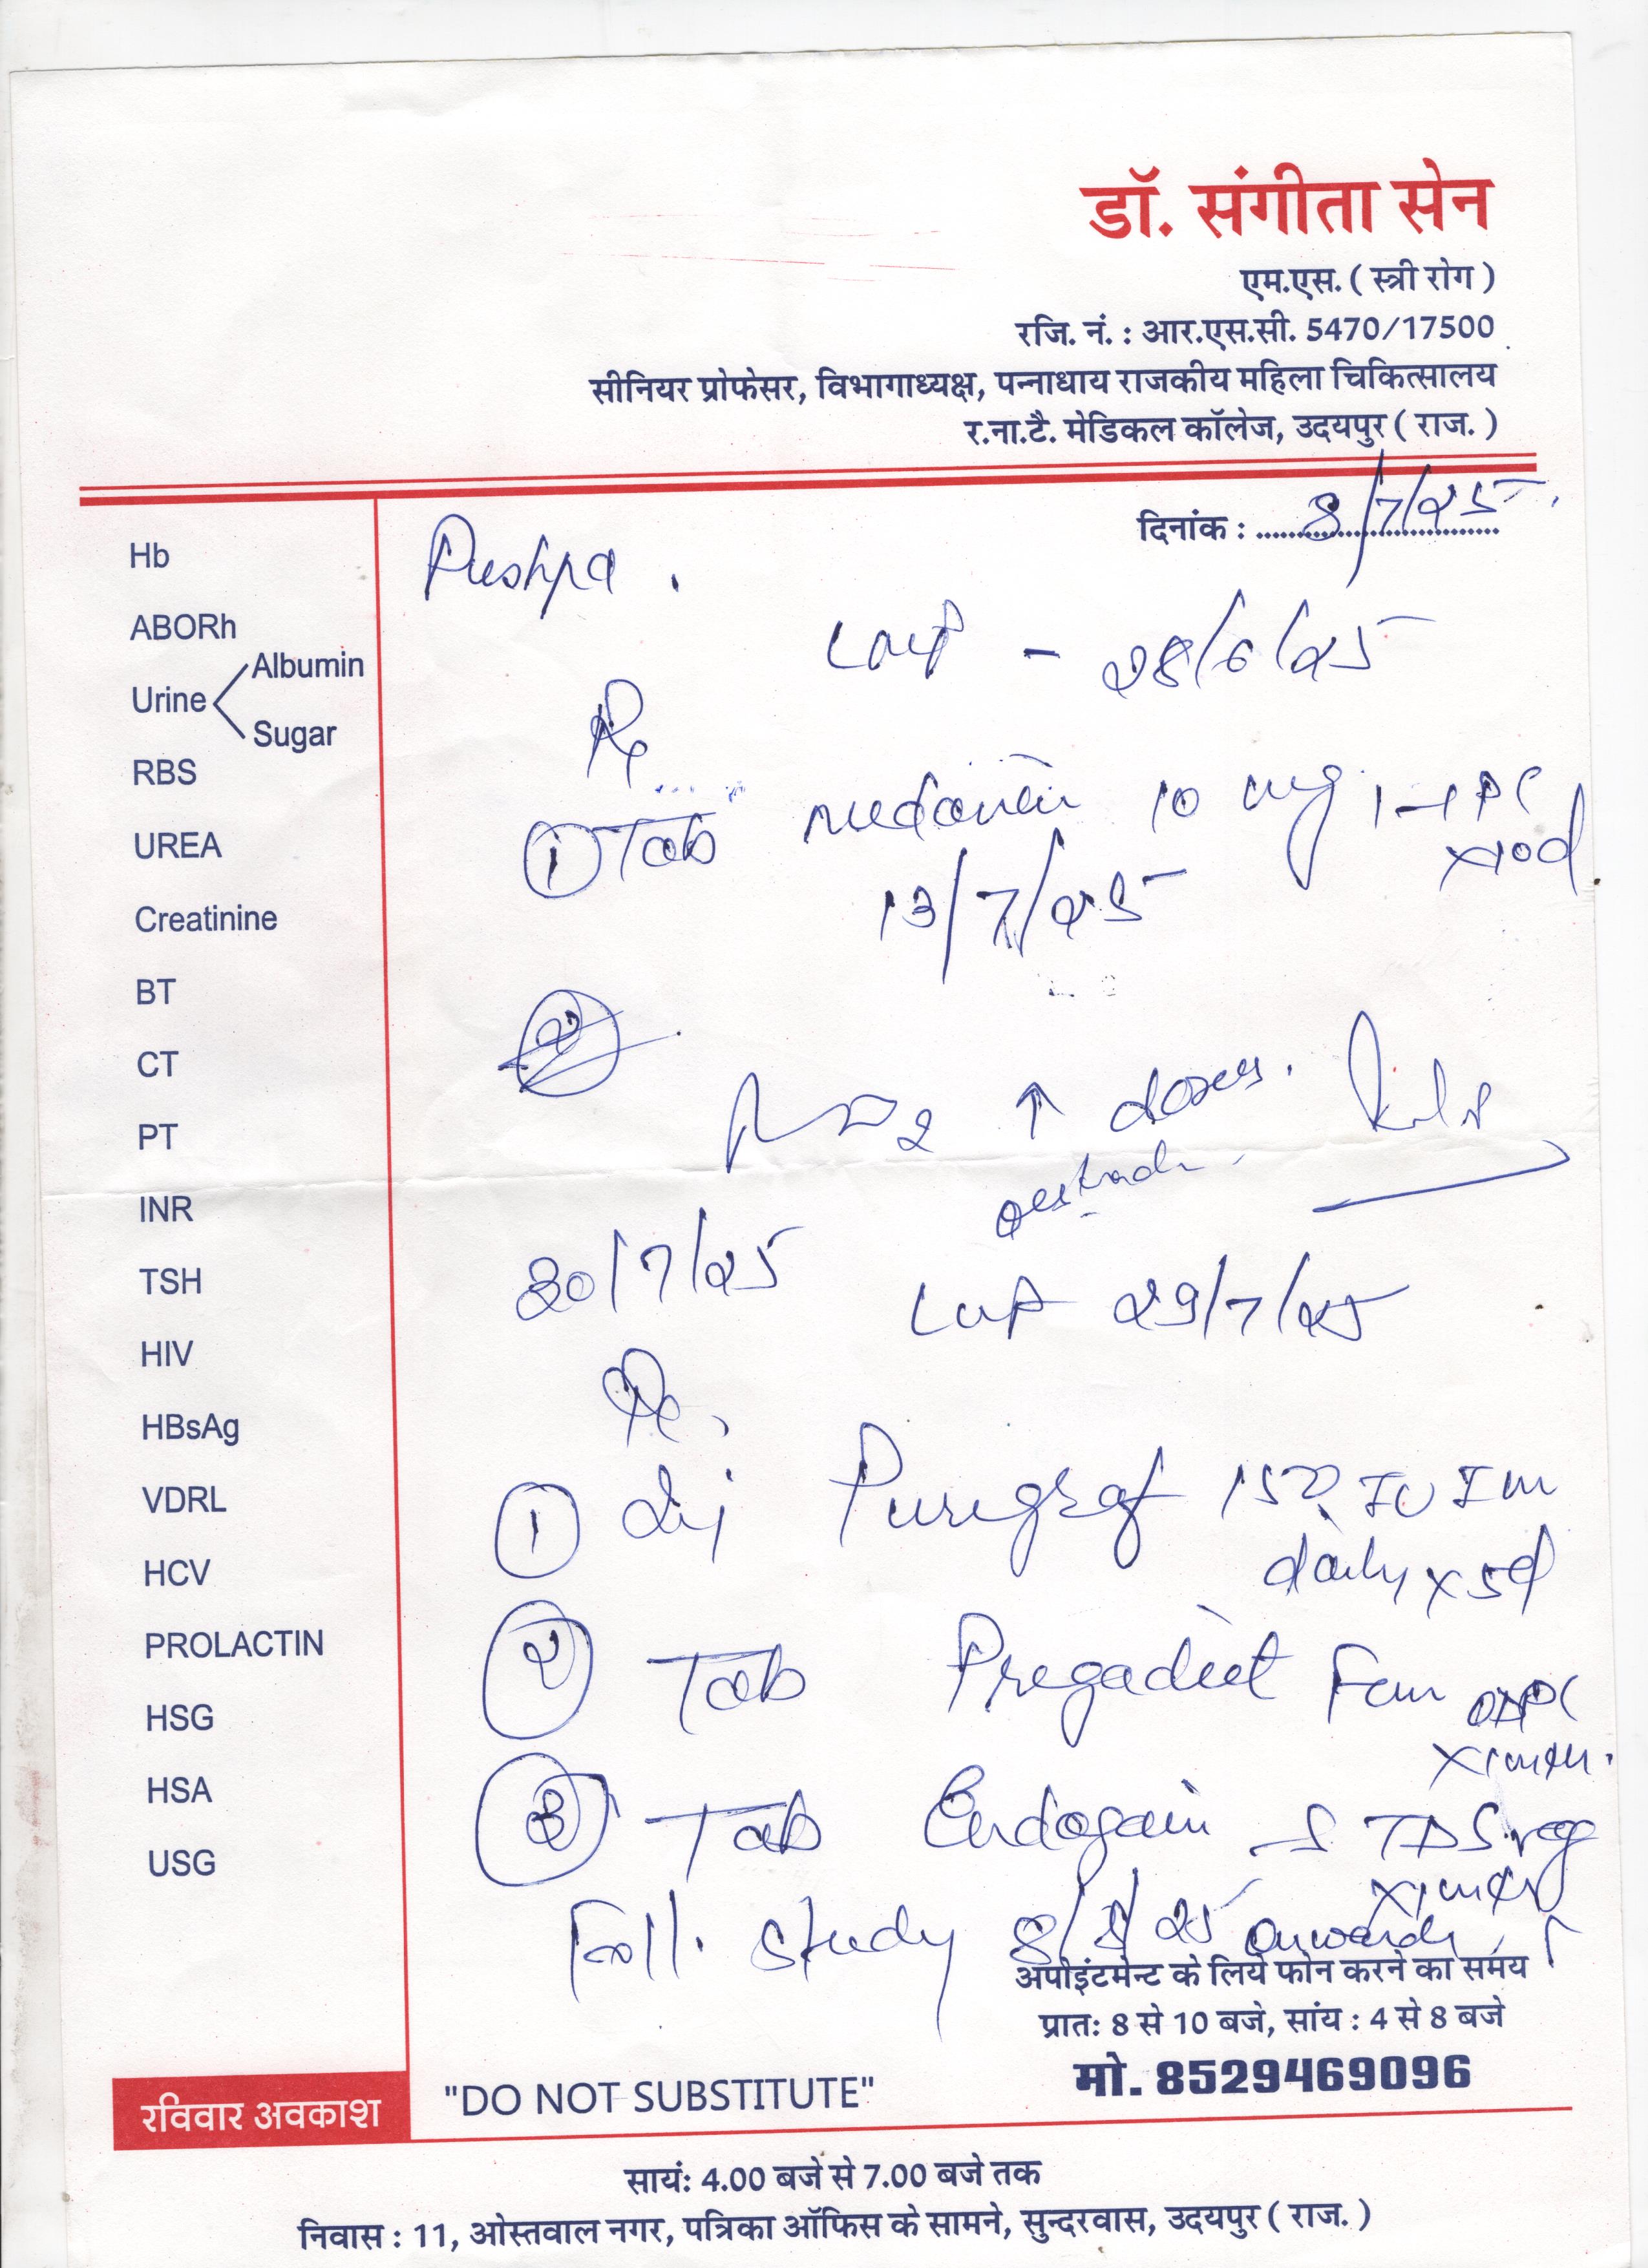 डॉ. संगीता सेन
एम.एस. ( स्त्री रोग )
रजि. नं. : आर.एस.सी. 5470/17500
सीनियर प्रोफेसर, विभागाध्यक्ष, पन्नाधाय राजकीय महिला चिकित्सालय
र.ना.टै. मेडिकल कॉलेज, उदयपुर ( राज. )
दिनांक : 8/7/25
Hb
ABORh
Urine
Albumin
Sugar
RBS
UREA
Creatinine
BT
CT
PT
INR
TSH
HIV
HBsAg
VDRL
HCV
PROLACTIN
HSG
HSA
USG
Pushpa .
LMP - 28/6/25
Rx
① Tab 10 mg
x 10d
13/7/25
②
↑ doses.
30/7/25 LMP 29/7/25
Rx
① Inj Puregraf 150 IU IM
daily x 5d
② Tab Pregadiet
③ Tab Endogain TDS
Foll. study 8/8/25 onwards
अपोइंटमेन्ट के लिये फोन करने का समय
प्रातः 8 से 10 बजे, सांय : 4 से 8 बजे
मो. 8529469096
रविवार अवकाश
"DO NOT SUBSTITUTE"
सायं: 4.00 बजे से 7.00 बजे तक
निवास : 11, ओस्तवाल नगर, पत्रिका ऑफिस के सामने, सुन्दरवास, उदयपुर ( राज. )